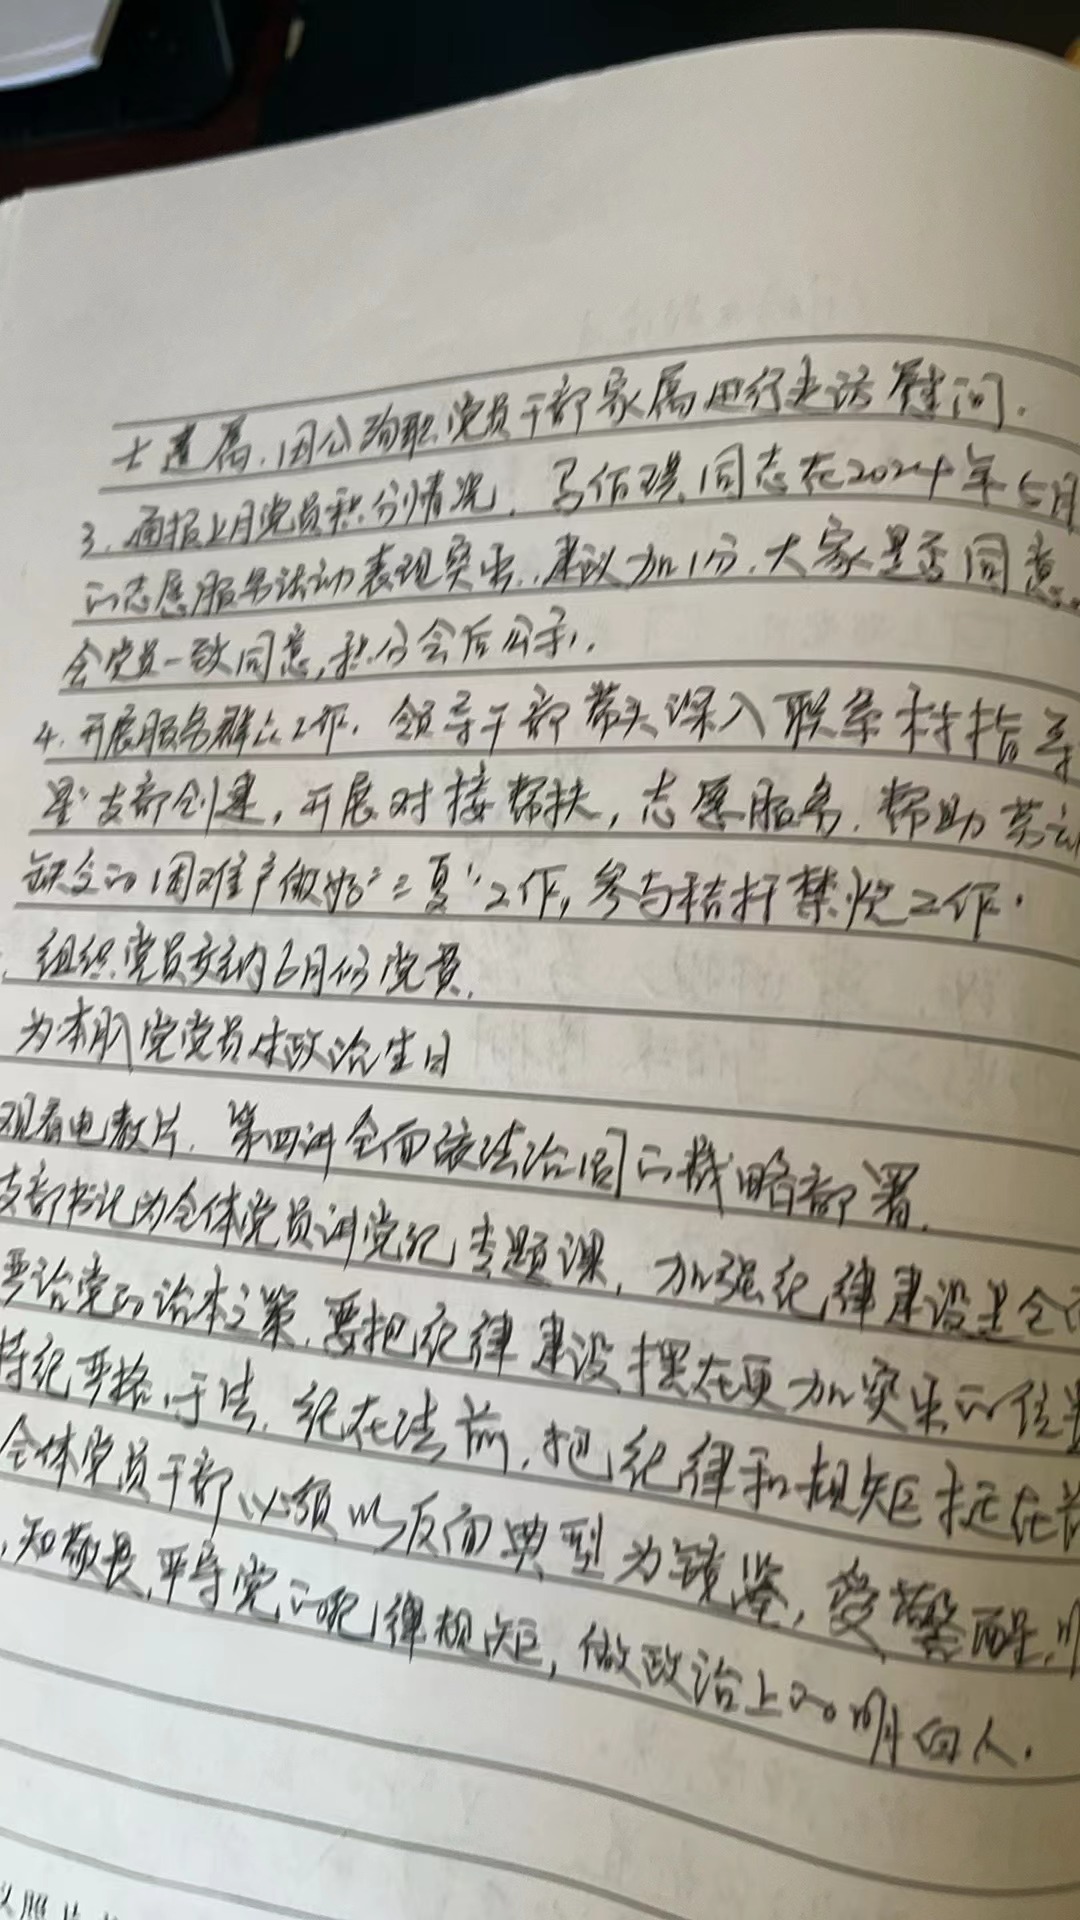 士遗属、因公殉职党员干部家属进行走访慰问.
3、通报上月党员积分情况. 马佰 同志在2024年5月
的志愿服务活动表现突出, 建议加1分. 大家是否同意.
会党员一致同意, 积分会后公示.
4. 开展服务群众工作. 领导干部带头深入联系村指导
星"支部创建, 开展对接帮扶, 志愿服务. 帮助劳动
缺乏的困难户做好"三夏"工作, 参与秸秆禁烧工作.
组织党员交纳6月份党费.
为本月入党党员过政治生日
观看电教片. 第四讲全面依法治国的战略部署.
支部书记为全体党员讲党纪专题课, 加强纪律建设是全面
严治党的治本之策. 要把纪律建设摆在更加突出的位置
持纪严格于法. 纪在法前, 把纪律和规矩挺在前
全体党员干部必须以反面典型为镜鉴, 受警醒, 明
、知敬畏, 严守党的纪律规矩, 做政治上的明白人.
照片